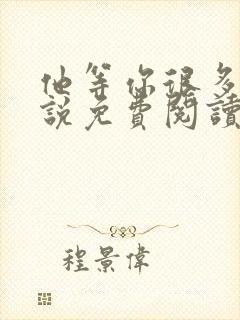 他等你很多
說免費閱讀
程景偉